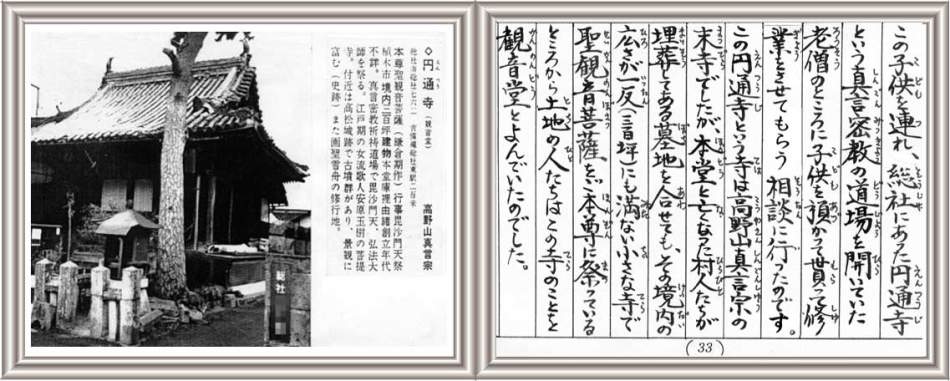 ◇円通寺（観音堂） 高野山真言宗
総社市総社七六二 吉備線総社東駅二百米
本尊聖観音菩薩（鎌倉期作）行事毘沙門天祭
植木市 境内二百坪 建物本堂庫裡 由緒創立年代
不詳。真言密教祈祷道場で毘沙門天、弘法大
師を祭る。江戸期の女流歌人安原玉樹の菩提
寺。付近は高松城跡で古墳群があり、景観に
富む（史跡）また画聖雪舟の修行地。
総社
この子供を連れ、総社にあった円通寺
という真言密教の道場を開いていた
老僧のところに子供を預かって貰って修
業をさせてもらう相談に行ったのです。
この円通寺という寺は高野山真言宗の
末寺でしたが、本堂と亡なった村人たちが
埋葬してある墓地を合せても、その境内の
広さが一反（三百坪）にも満ない小さな寺で
聖観音菩薩をご本尊に祭っている
ところから土地の人たちはこの寺のことを
観音堂とよんでいたのでした。
(33)